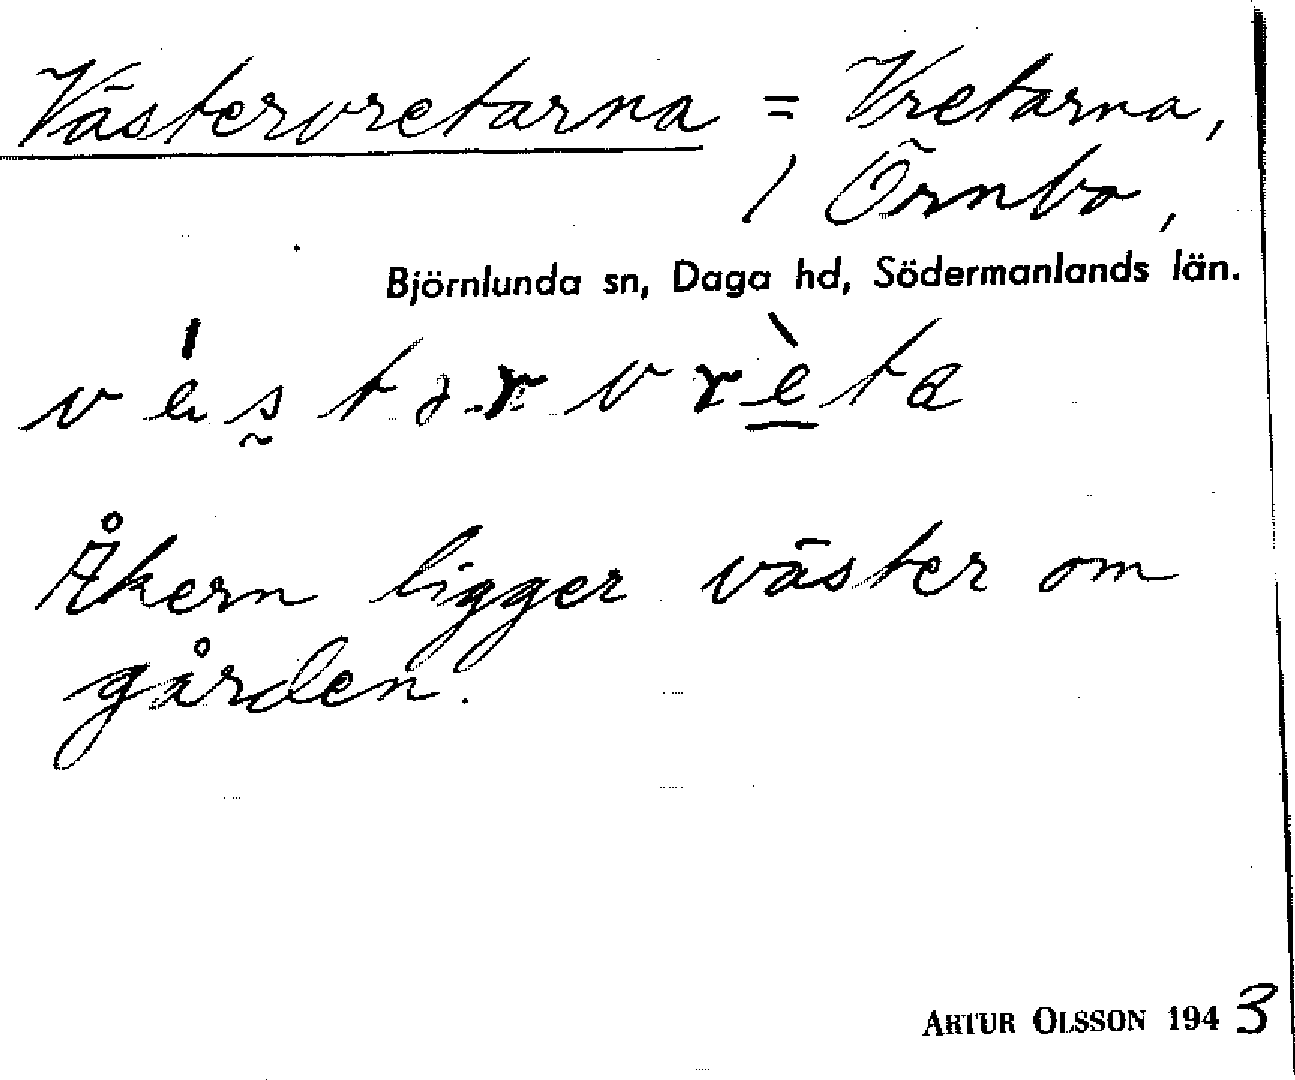 Västervretarna = Vretarna,
/ Örnbo,
Björnlunda sn, Daga hd, Södermanlands län.
Åkern ligger väster om
gården.
ARTUR OLSSON 1943